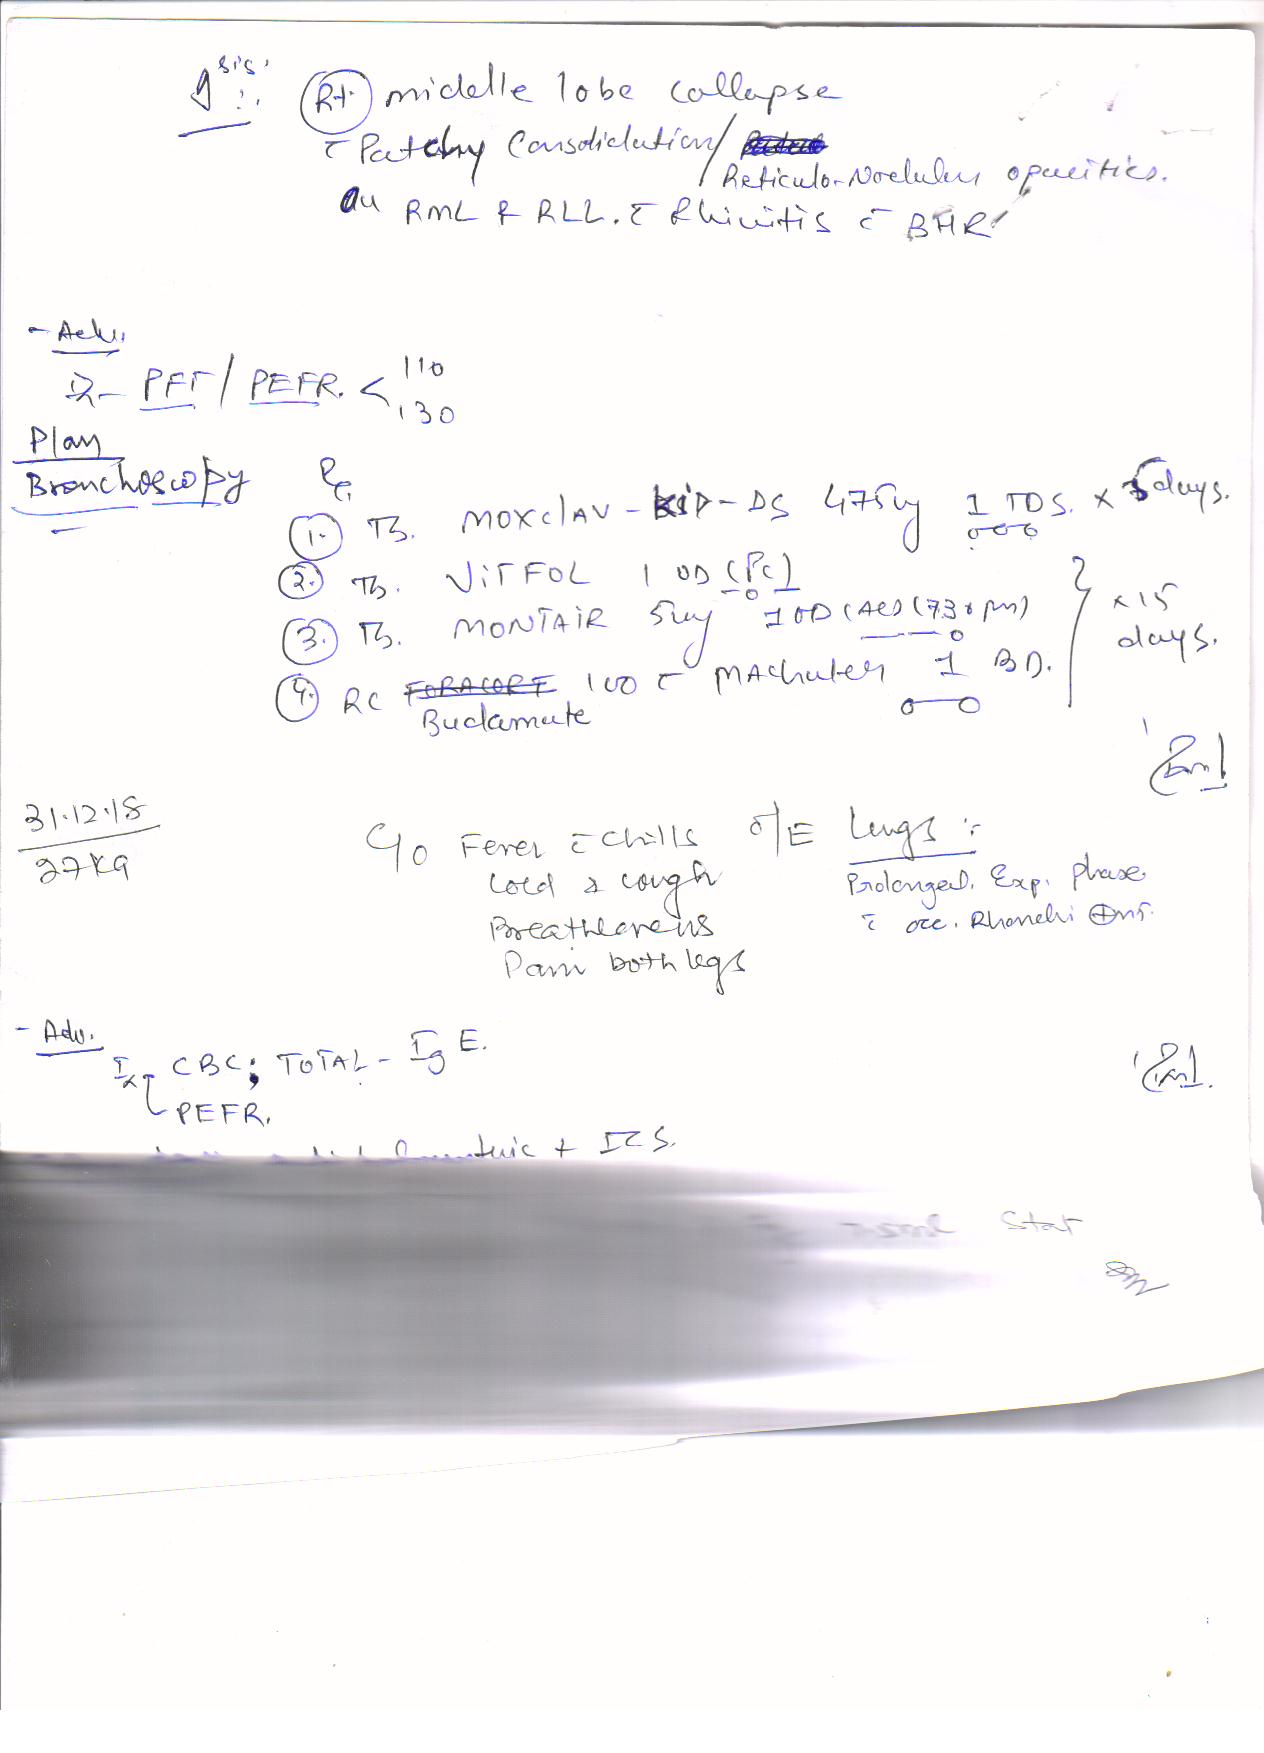 sis.
Rt middle lobe collapse
c̄ Patchy Consolidation/
Reticulo-Nodular opacities.
RML & RLL. c̄ Rhinitis c̄ BHR
- Adv.
PFT / PEFR. < 110
130
Plan
Bronchoscopy
Rx
1. Tb. MOXCLAV - KID - DS 475mg 1 TDS. x 5 days.
2. Tb. VITFOL 1 OD (Pc)
3. Tb. MONTAIR 5mg 1 OD (7 30 pm)
x 15 days.
4. RC FORACORT 100 c̄ MAchaler 1 BD.
Budamate
31.12.18
27 Kg
C/o Fever c̄ Chills
Cold & cough
Breathlessness
Pain both legs
O/E Lungs :
Prolonged. Exp. phase
c̄ occ. Rhonchi ⊕nt.
- Adv.
Ix CBC; TOTAL - Ig E.
PEFR.
+ ICS.
stat